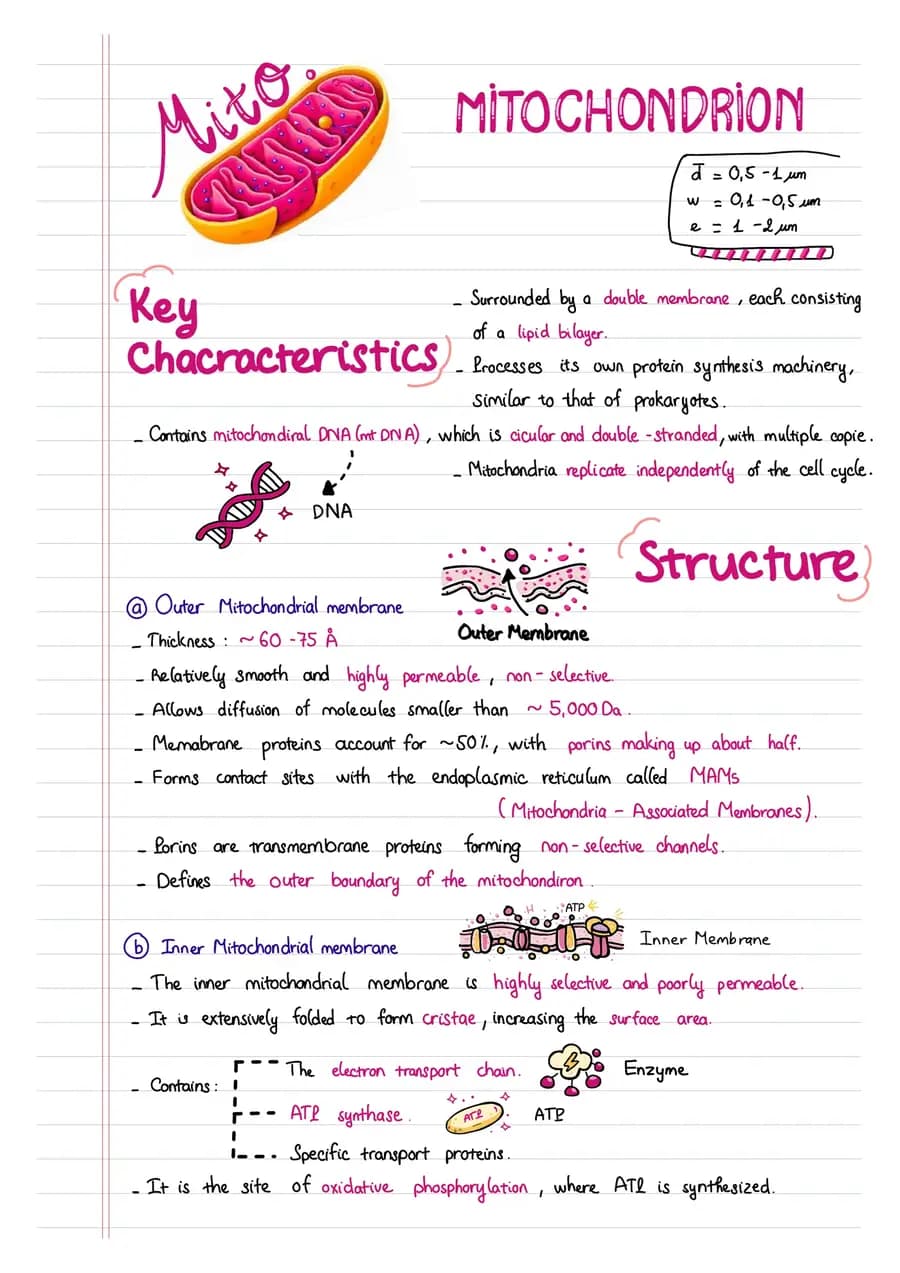 Mito.
MITOCHONDRION
d̄ = 0,5 - 1 µm
w = 0,1 - 0,5 µm
e = 1 - 2 µm
Key
Chacracteristics
- Surrounded by a double membrane, each consisting
of a lipid bilayer.
- Processes its own protein synthesis machinery,
similar to that of prokaryotes.
- Contains mitochondiral DNA (mt DNA), which is cicular and double-stranded, with multiple copie.
- Mitochondria replicate independently of the cell cycle.
DNA
Structure
Outer Membrane
ⓐ Outer Mitochondrial membrane
- Thickness : ~ 60 - 75 Å
- Relatively smooth and highly permeable, non-selective.
- Allows diffusion of molecules smaller than ~ 5,000 Da.
- Memabrane proteins account for ~50%, with porins making up about half.
- Forms contact sites with the endoplasmic reticulum called MAMs
(Mitochondria - Associated Membranes).
- Porins are transmembrane proteins forming non-selective channels.
- Defines the outer boundary of the mitochondiron.
H ATP
Inner Membrane
ⓑ Inner Mitochondrial membrane
- The inner mitochondrial membrane is highly selective and poorly permeable.
- It is extensively folded to form cristae, increasing the surface area.
- Contains :
The electron transport chain.
Enzyme
ATP synthase.
ATP
ATP
Specific transport proteins.
- It is the site of oxidative phosphorylation, where ATP is synthesized.